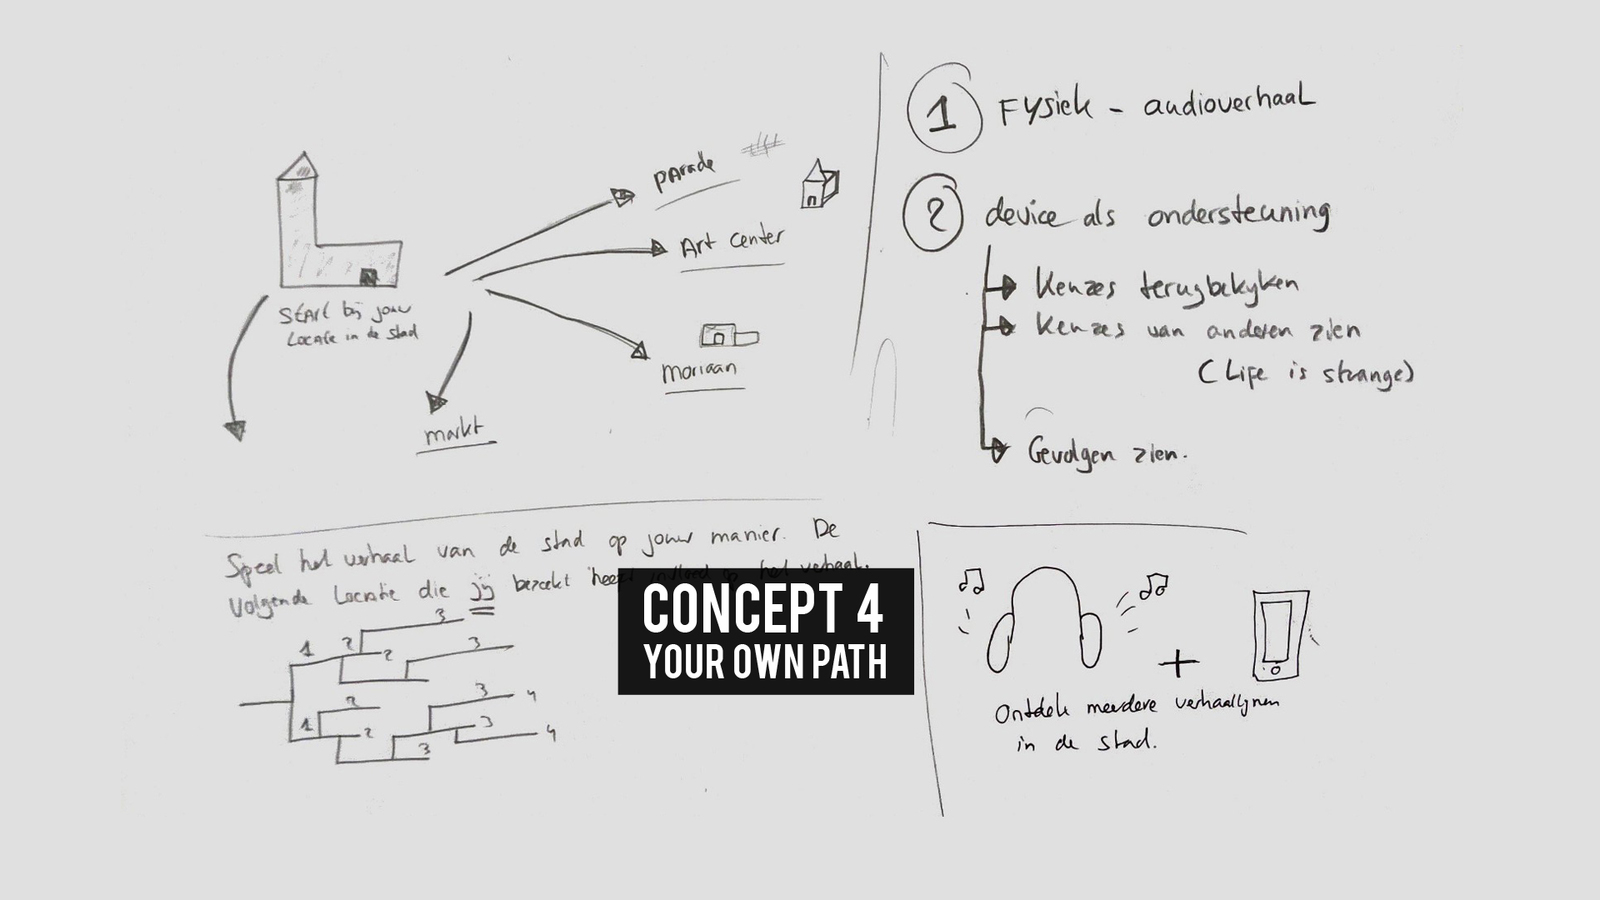 Start bij jouw
Locatie in de stad
parade
Art center
moriaan
markt
1 Fysiek - audioverhaal
2 device als ondersteuning
Keuzes terugbekyken
Keuzes van anderen zien
(Life is strange)
Gevolgen zien.
Speel het verhaal van de stad op jouw manier. De
volgende Locatie die jij bezoekt heeft invloed op het verhaal.
1 2 3
2 3
1 2
2 3 4
3 3 4
CONCEPT 4
YOUR OWN PATH
+
Ontdek meerdere verhaallynen
in de stad.